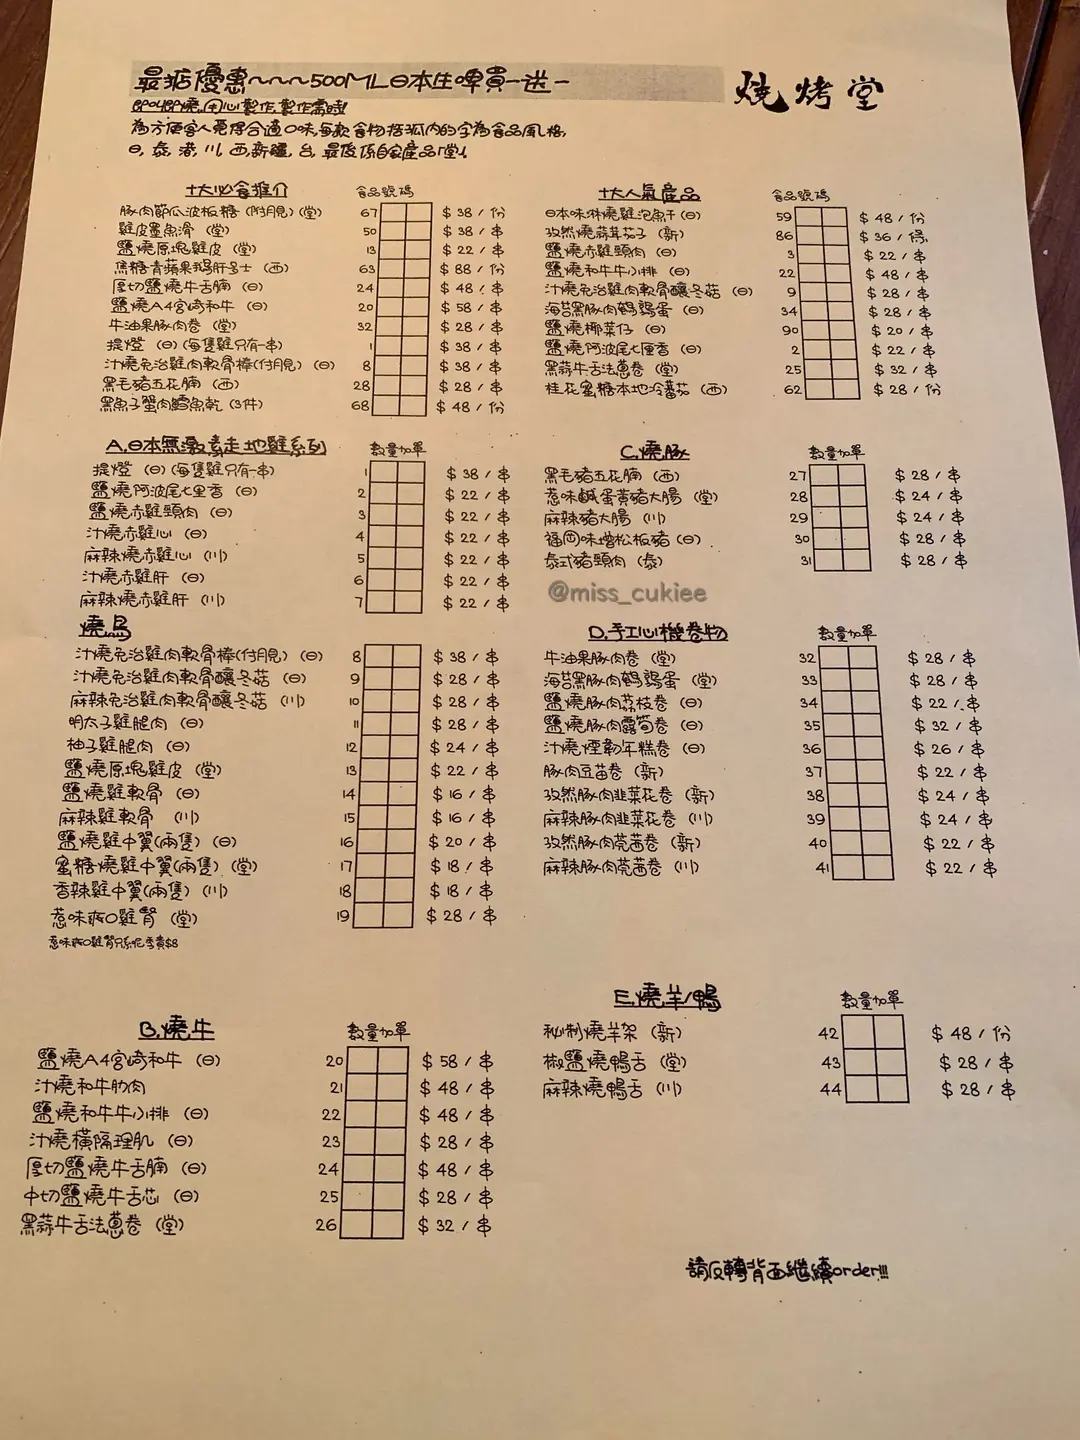 最抵優惠~~~500ML日本生啤買一送一
燒烤堂
即叫即燒,用心製作,製作需時!
為方便客人覓得合適口味,每款食物括弧內的字為食品風格,
日, 泰, 港, 川, 西,新疆, 台, 最後係自家產品「堂!」
十大必食推介 食品號碼
豚肉節瓜波板糖 (附月見) (堂) 67 $ 38 / 份
雞皮墨魚滑 (堂) 50 $ 38 / 串
鹽燒原塊雞皮 (堂) 13 $ 22 / 串
焦糖青蘋果鵝肝多士 (西) 63 $ 88 / 份
厚切鹽燒牛舌腩 (日) 24 $ 48 / 串
鹽燒A4宮崎和牛 (日) 20 $ 58 / 串
牛油果豚肉卷 (堂) 32 $ 28 / 串
提燈 (日) (每隻雞只有一串) 1 $ 38 / 串
汁燒免治雞肉軟骨棒(付月見) (日) 8 $ 38 / 串
黑毛豬五花腩 (西) 28 $ 28 / 串
黑魚子蟹肉鱈魚乾 (3件) 68 $ 48 / 份
十大人氣產品 食品號碼
日本味淋燒雞泡魚干 (日) 59 $ 48 / 份
孜然燒蒜茸茄子 (新) 86 $ 36 / 得
鹽燒赤雞頸肉 (日) 3 $ 22 / 串
鹽燒和牛牛小排 (日) 22 $ 48 / 串
汁燒免治雞肉軟骨釀冬菇 (日) 9 $ 28 / 串
海苔黑豚肉鵪鶉蛋 (日) 34 $ 28 / 串
鹽燒椰菜仔 (日) 90 $ 20 / 串
鹽燒阿波尾七里香 (日) 2 $ 22 / 串
黑蒜牛舌法蔥卷 (日) 25 $ 32 / 串
桂花蜜糖本地冷蕃茄 (西) 62 $ 28 / 份
A.日本無激素走地雞系列 數量加單
提燈 (日) (每隻雞只有一串) 1 $ 38 / 串
鹽燒阿波尾七里香 (日) 2 $ 22 / 串
鹽燒赤雞頸肉 (日) 3 $ 22 / 串
汁燒赤雞心 (日) 4 $ 22 / 串
麻辣燒赤雞心 (川) 5 $ 22 / 串
汁燒赤雞肝 (日) 6 $ 22 / 串
麻辣燒赤雞肝 (川) 7 $ 22 / 串
燒鳥
汁燒免治雞肉軟骨棒(付月見) (日) 8 $ 38 / 串
汁燒免治雞肉軟骨釀冬菇 (日) 9 $ 28 / 串
麻辣免治雞肉軟骨釀冬菇 (川) 10 $ 28 / 串
明太子雞腿肉 (日) 11 $ 28 / 串
柚子雞腿肉 (日) 12 $ 24 / 串
鹽燒原塊雞皮 (堂) 13 $ 22 / 串
鹽燒雞軟骨 (日) 14 $ 16 / 串
麻辣雞軟骨 (川) 15 $ 16 / 串
鹽燒雞中翼(兩隻) (日) 16 $ 20 / 串
蜜糖燒雞中翼(兩隻) (堂) 17 $ 18 / 串
香辣雞中翼(兩隻) (川) 18 $ 18 / 串
惹味爽口雞腎 (堂) 19 $ 28 / 串
惹味爽口雞腎只係呢季賣$8
B.燒牛 數量加單
鹽燒A4宮崎和牛 (日) 20 $ 58 / 串
汁燒和牛肋肉 21 $ 48 / 串
鹽燒和牛牛小排 (日) 22 $ 48 / 串
汁燒橫隔理肌 (日) 23 $ 28 / 串
厚切鹽燒牛舌腩 (日) 24 $ 48 / 串
中切鹽燒牛舌芯 (日) 25 $ 28 / 串
黑蒜牛舌法蔥卷 (堂) 26 $ 32 / 串
C.燒豚 數量加單
黑毛豬五花腩 (西) 27 $ 28 / 串
惹味鹹蛋黃豬大腸 (堂) 28 $ 24 / 串
麻辣豬大腸 (川) 29 $ 24 / 串
福岡味增松板豬 (日) 30 $ 28 / 串
泰式豬頸肉 (泰) 31 $ 28 / 串
@miss_cukiee
D.手工心機卷物 數量加單
牛油果豚肉卷 (堂) 32 $ 28 / 串
海苔黑豚肉鵪鶉蛋 (堂) 33 $ 28 / 串
鹽燒豚肉荔枝卷 (日) 34 $ 22 / 串
鹽燒豚肉露筍卷 (日) 35 $ 32 / 串
汁燒煙韌年糕卷 (日) 36 $ 26 / 串
豚肉豆苗卷 (新) 37 $ 22 / 串
孜然豚肉韮菜花卷 (新) 38 $ 24 / 串
麻辣豚肉韮菜花卷 (川) 39 $ 24 / 串
孜然豚肉莞茜卷 (新) 40 $ 22 / 串
麻辣豚肉莞茜卷 (川) 41 $ 22 / 串
E.燒羊/鴨 數量加單
秘制燒羊架 (新) 42 $ 48 / 份
椒鹽燒鴨舌 (堂) 43 $ 28 / 串
麻辣燒鴨舌 (川) 44 $ 28 / 串
請反轉背面繼續order!!!